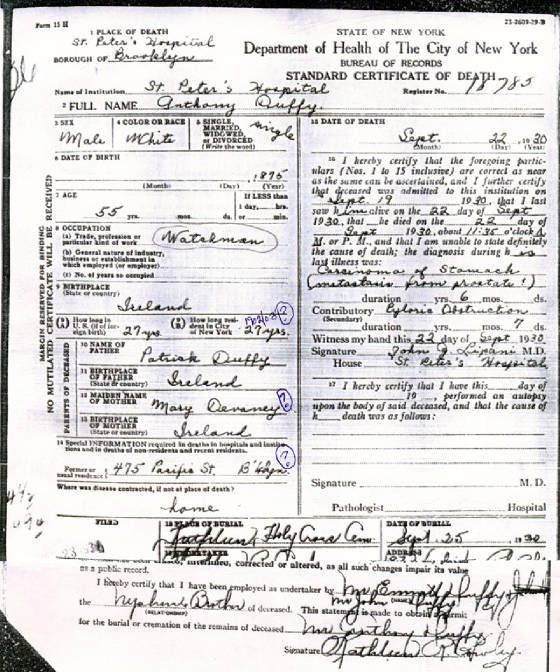 Form 15 H
25-2609-29-B
1 PLACE OF DEATH
St. Peter's Hospital
BOROUGH OF Brooklyn
STATE OF NEW YORK
Department of Health of The City of New York
BUREAU OF RECORDS
STANDARD CERTIFICATE OF DEATH
Name of Institution St. Peter's Hospital
Register No. 18785
2 FULL NAME Anthony Duffy.
MARGIN RESERVED FOR BINDING
NO MUTILATED CERTIFICATE WILL BE RECEIVED
3 SEX Male
4 COLOR OR RACE White
5 SINGLE, MARRIED, WIDOWED, OR DIVORCED (Write the word) single
6 DATE OF BIRTH
1875
(Month) (Day) (Year)
7 AGE
55 yrs. mos. ds.
If LESS than
1 day, hrs.
or min.
8 OCCUPATION
(a) Trade, profession or particular kind of work Watchman
(b) General nature of industry, business or establishment in which employed (or employer)
(c) No. of years so occupied
9 BIRTHPLACE
(State or country)
Ireland
(A) How long in U. S. (if of foreign birth) 27 yrs.
(B) How long resident in City of New York 27 yrs.
PARENTS OF DECEASED
10 NAME OF FATHER Patrick Duffy
11 BIRTHPLACE OF FATHER (State or country) Ireland
12 MAIDEN NAME OF MOTHER Mary Devaney ?
13 BIRTHPLACE OF MOTHER (State or country) Ireland
14 Special INFORMATION required in deaths in hospitals and institutions and in deaths of non-residents and recent residents.
Former or usual residence 475 Pacific St. B'klyn. ?
Where was disease contracted, if not at place of death?
home
15 DATE OF DEATH
Sept. 22 1930
(Month) (Day) (Year)
16 I hereby certify that the foregoing particulars (Nos. 1 to 15 inclusive) are correct as near as the same can be ascertained, and I further certify that deceased was admitted to this institution on
Sept. 19 1930, that I last
saw him alive on the 22 day of Sept
1930, that he died on the 22 day of
Sept 1930, about 11:35 o'clock A.
M. or P. M., and that I am unable to state definitely the cause of death; the diagnosis during his last illness was:
Carcinoma of Stomach
(metastasis from prostate!)
duration yrs. 6 mos. ds.
Contributory Pyloric Obstruction
(Secondary)
duration yrs. mos. 7 ds.
Witness my hand this 22 day of Sept 1930
Signature John G. Lipani M.D.
House St. Peter's Hospital
17 I hereby certify that I have this day of
19 , performed an autopsy
upon the body of said deceased, and that the cause of
h death was as follows:
Signature M. D.
Pathologist Hospital
FILED
18 PLACE OF BURIAL
Holy Cross Cem.
DATE OF BURIAL
Sept. 25 1930
ADDRESS
corrected or altered, as all such changes impair its value
as a public record.
I hereby certify that I have been employed as undertaker by
the Nephew of deceased. This statement is made to obtain a permit
(RELATIONSHIP)
for the burial or cremation of the remains of deceased Mr Anthony Duffy
Signature Kathleen